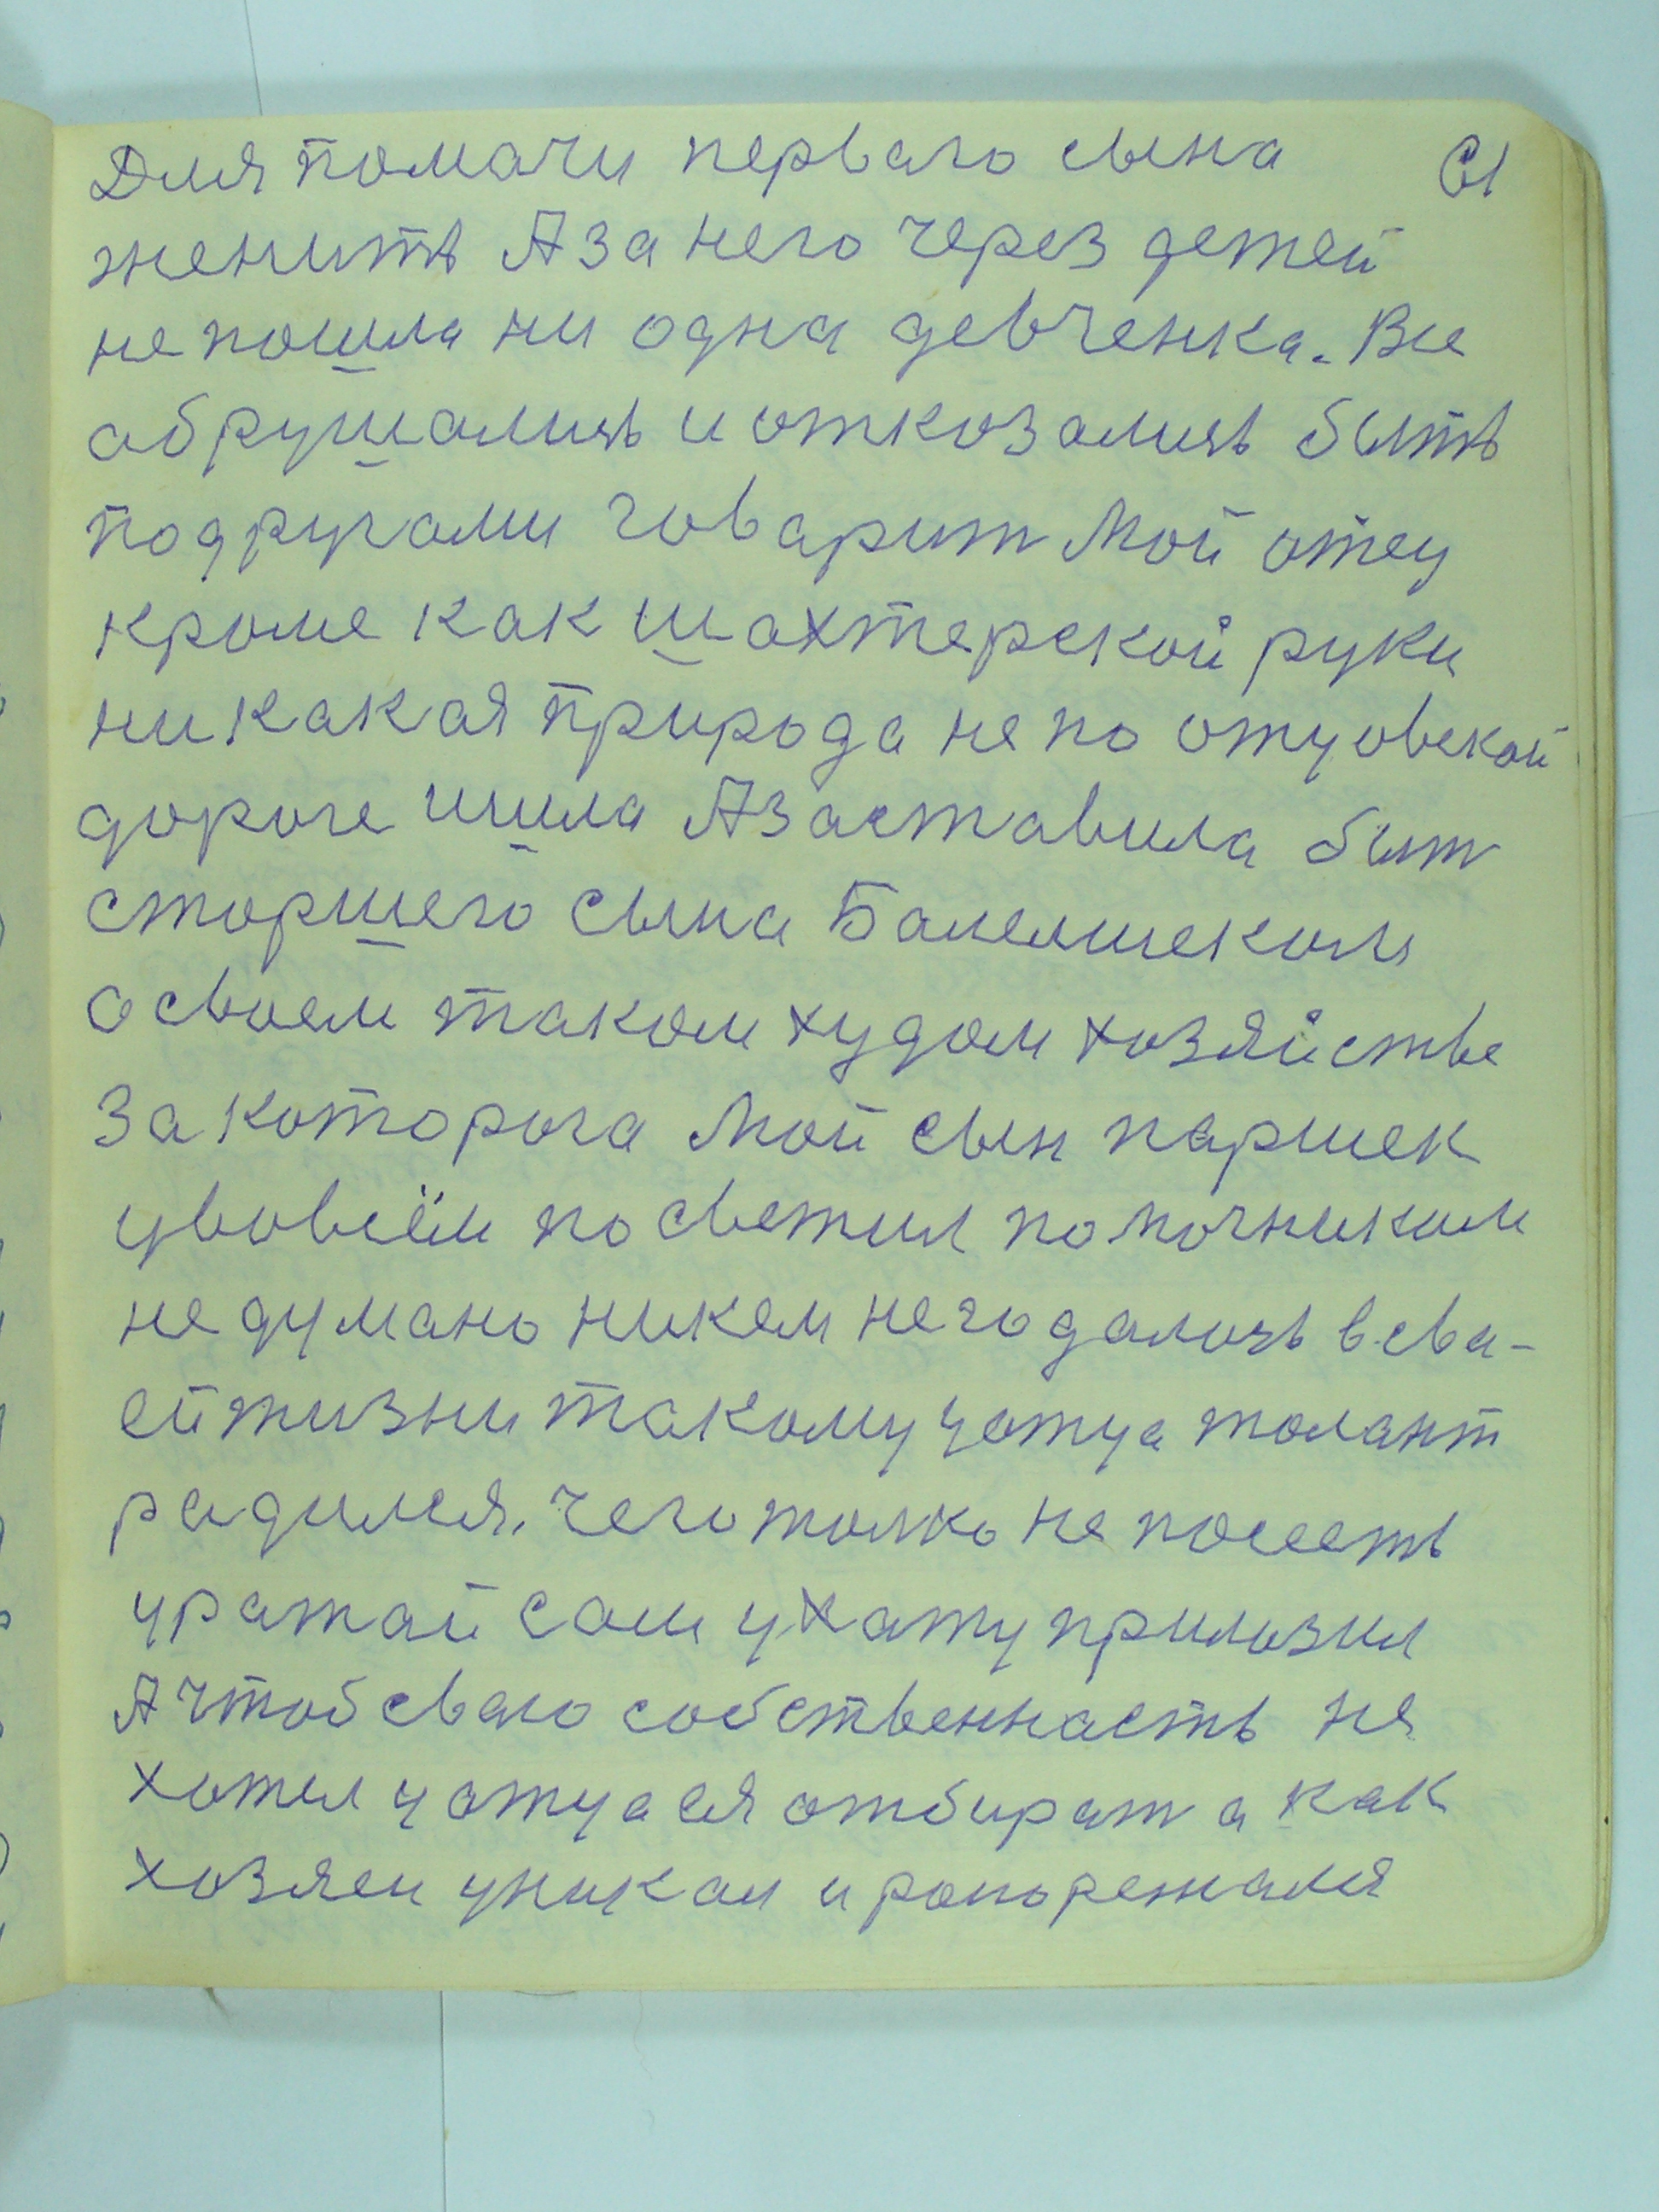 Для помачи перваго сына
женить А за него через детей
не пошла ни одна девченка. Все
абрушались и отказались быть
подругами говарит Мой отец
кроме как шахтерской руки
ни какая природа не по отцовской
дороге шила А заставила быт
старшего сына Балелшеком
о своем таком худом хозяйстве
За которога Мой сын паршек
увовсём посветил помочником
не думано никем не годалось в сва-
ей жизни такому уотца толант
радился, чего толко не посеять
уражай сам ухату прилазил
А чтоб сваю собственность не
хотел уотца ся отбират а как
хозяен уникал и рапорежался